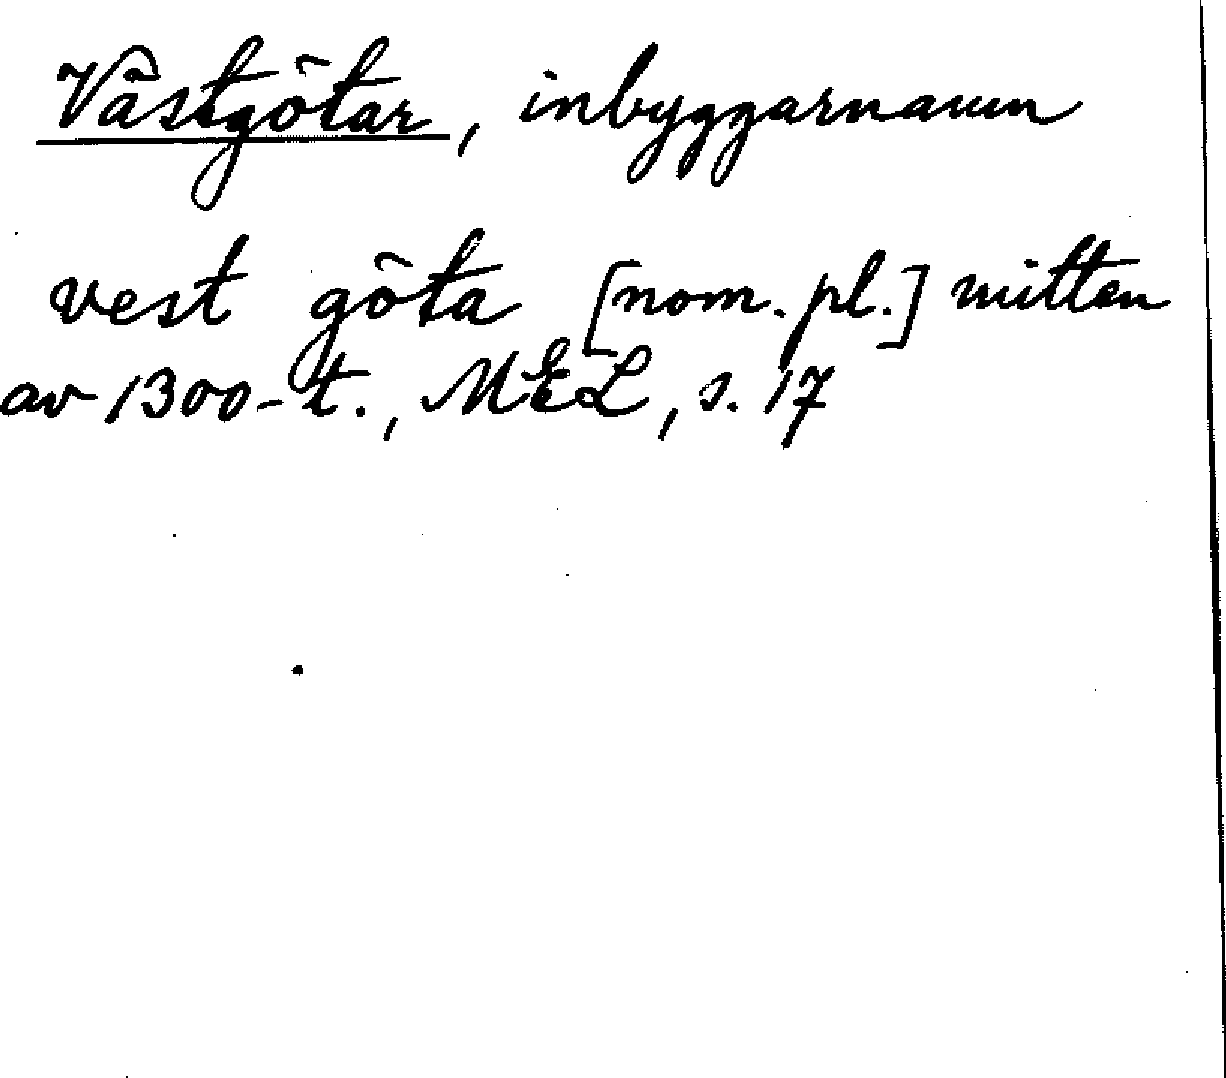 Västgötar, inbyggarnamn
vest göta [nom. pl.] mitten
av 1300-t., MEL, s. 17